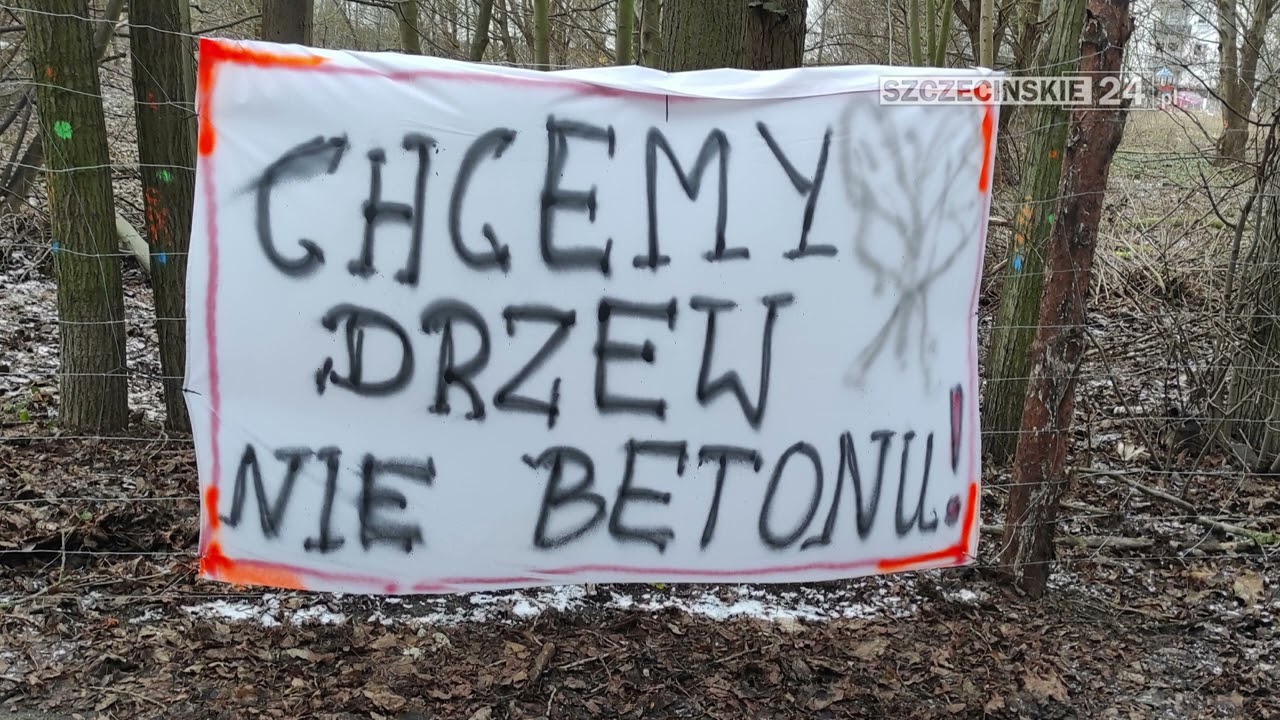 SZCZECINSKIE 24 .pl
CHCEMY
DRZEW
NIE BETONU!